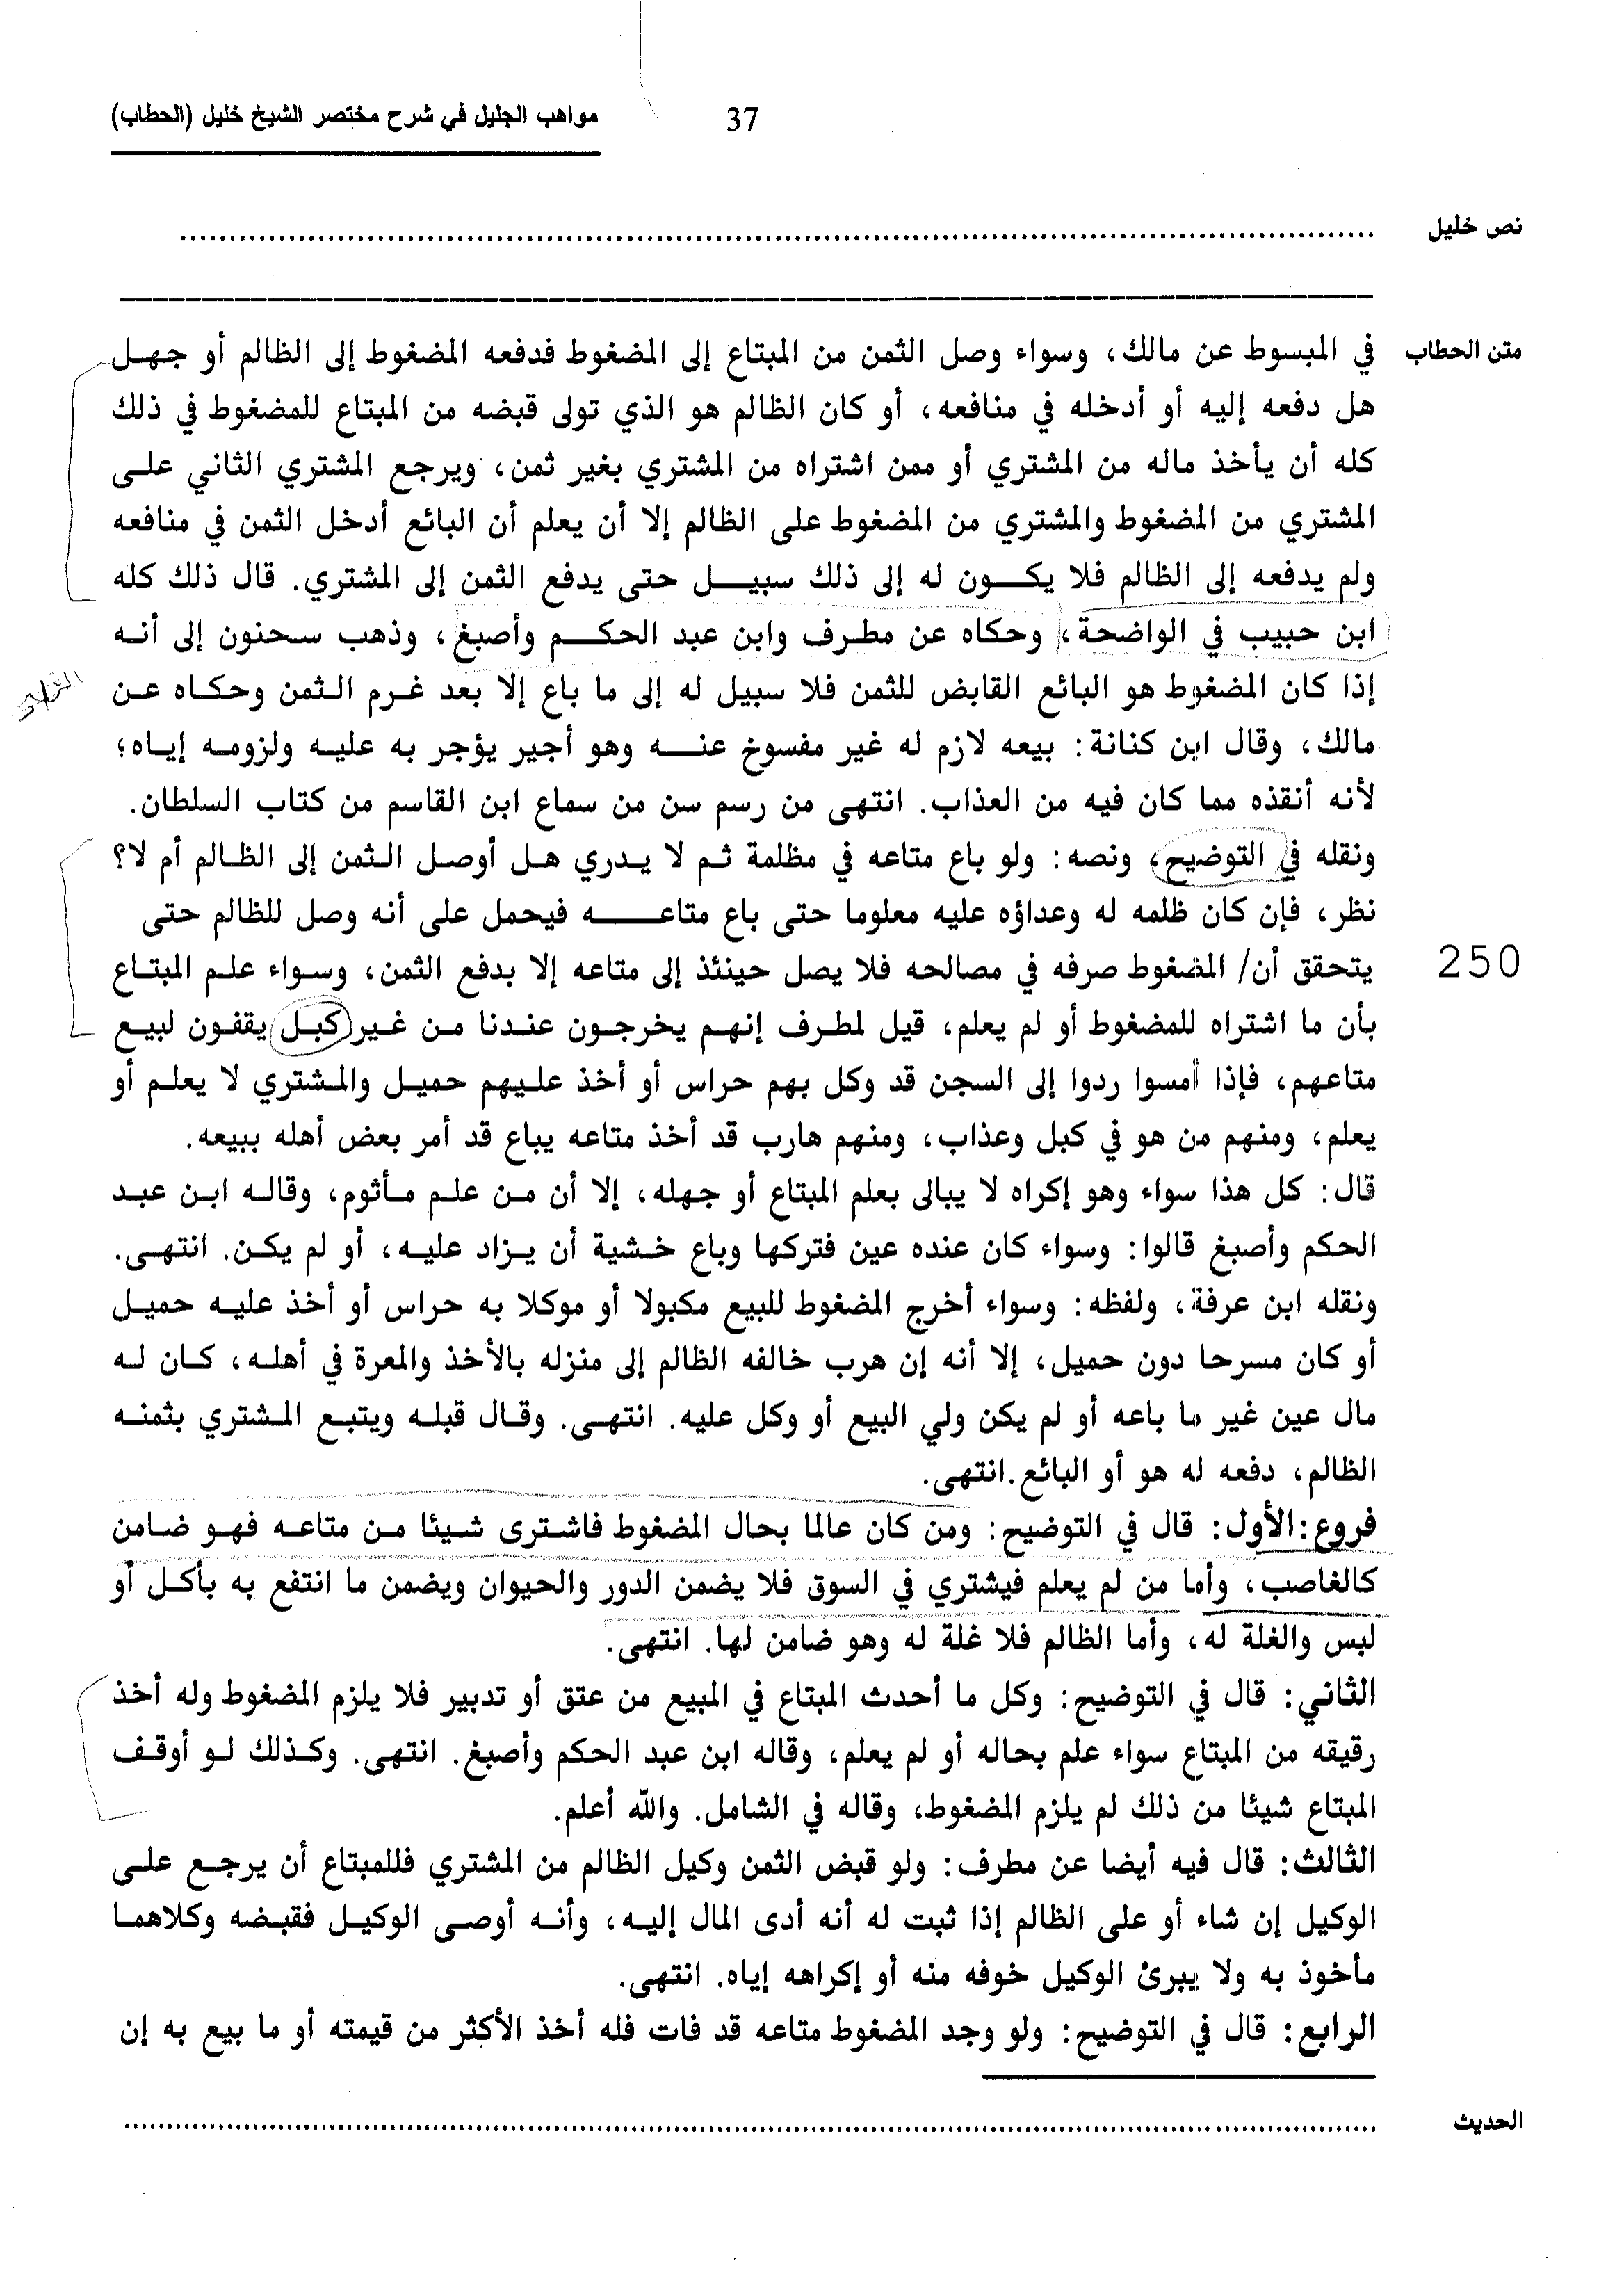 مواهب الجليل في شرح مختصر الشيخ خليل (الحطاب)
37
نص خليل ........................................
متن الحطاب
في المبسوط عن مالك، وسواء وصل الثمن من المبتاع إلى المضغوط فدفعه المضغوط إلى الظالم أو جهل
هل دفعه إليه أو أدخله في منافعه، أو كان الظالم هو الذي تولى قبضه من المبتاع للمضغوط في ذلك
كله أن يأخذ ماله من المشتري أو ممن اشتراه من المشتري بغير ثمن، ويرجع المشتري الثاني على
المشتري من المضغوط والمشتري من المضغوط على الظالم إلا أن يعلم أن البائع أدخل الثمن في منافعه
ولم يدفعه إلى الظالم فلا يكون له إلى ذلك سبيل حتى يدفع الثمن إلى المشتري. قال ذلك كله
ابن حبيب في الواضحة، وحكاه عن مطرف وابن عبد الحكم وأصبغ، وذهب سحنون إلى أنه
إذا كان المضغوط هو البائع القابض للثمن فلا سبيل له إلى ما باع إلا بعد غرم الثمن وحكاه عن
مالك، وقال ابن كنانة: بيعه لازم له غير مفسوخ عنه وهو أجير يؤجر به عليه ولزومه إياه؛
لأنه أنقذه مما كان فيه من العذاب. انتهى من رسم سن من سماع ابن القاسم من كتاب السلطان.
ونقله في التوضيح، ونصه: ولو باع متاعه في مظلمة ثم لا يدري هل أوصل الثمن إلى الظالم أم لا؟
نظر، فإن كان ظلمه له وعداؤه عليه معلوما حتى باع متاعه فيحمل على أنه وصل للظالم حتى
250
يتحقق أن/ المضغوط صرفه في مصالحه فلا يصل حينئذ إلى متاعه إلا بدفع الثمن، وسواء علم المبتاع
بأن ما اشتراه للمضغوط أو لم يعلم، قيل لمطرف إنهم يخرجون عندنا من غير كبل يقفون لبيع
متاعهم، فإذا أمسوا ردوا إلى السجن قد وكل بهم حراس أو أخذ عليهم حميل والمشتري لا يعلم أو
يعلم، ومنهم من هو في كبل وعذاب، ومنهم هارب قد أخذ متاعه يباع قد أمر بعض أهله ببيعه.
قال: كل هذا سواء وهو إكراه لا يبالى بعلم المبتاع أو جهله، إلا أن من علم مأثوم، وقاله ابن عبد
الحكم وأصبغ قالوا: وسواء كان عنده عين فتركها وباع خشية أن يزاد عليه، أو لم يكن. انتهى.
ونقله ابن عرفة، ولفظه: وسواء أخرج المضغوط للبيع مكبولا أو موكلا به حراس أو أخذ عليه حميل
أو كان مسرحا دون حميل، إلا أنه إن هرب خالفه الظالم إلى منزله بالأخذ والمعرة في أهله، كان له
مال عين غير ما باعه أو لم يكن ولي البيع أو وكل عليه. انتهى. وقال قبله ويتبع المشتري بثمنه
الظالم، دفعه له هو أو البائع.انتهى.
فروع:الأول: قال في التوضيح: ومن كان عالما بحال المضغوط فاشترى شيئا من متاعه فهو ضامن
كالغاصب، وأما من لم يعلم فيشتري في السوق فلا يضمن الدور والحيوان ويضمن ما انتفع به بأكل أو
لبس والغلة له، وأما الظالم فلا غلة له وهو ضامن لها. انتهى.
الثاني: قال في التوضيح: وكل ما أحدث المبتاع في المبيع من عتق أو تدبير فلا يلزم المضغوط وله أخذ
رقيقه من المبتاع سواء علم بحاله أو لم يعلم، وقاله ابن عبد الحكم وأصبغ. انتهى. وكذلك لو أوقف
المبتاع شيئا من ذلك لم يلزم المضغوط، وقاله في الشامل. والله أعلم.
الثالث: قال فيه أيضا عن مطرف: ولو قبض الثمن وكيل الظالم من المشتري فللمبتاع أن يرجع على
الوكيل إن شاء أو على الظالم إذا ثبت له أنه أدى المال إليه، وأنه أوصى الوكيل فقبضه وكلاهما
مأخوذ به ولا يبرئ الوكيل خوفه منه أو إكراهه إياه. انتهى.
الرابع: قال في التوضيح: ولو وجد المضغوط متاعه قد فات فله أخذ الأكثر من قيمته أو ما بيع به إن
الحديث ........................................